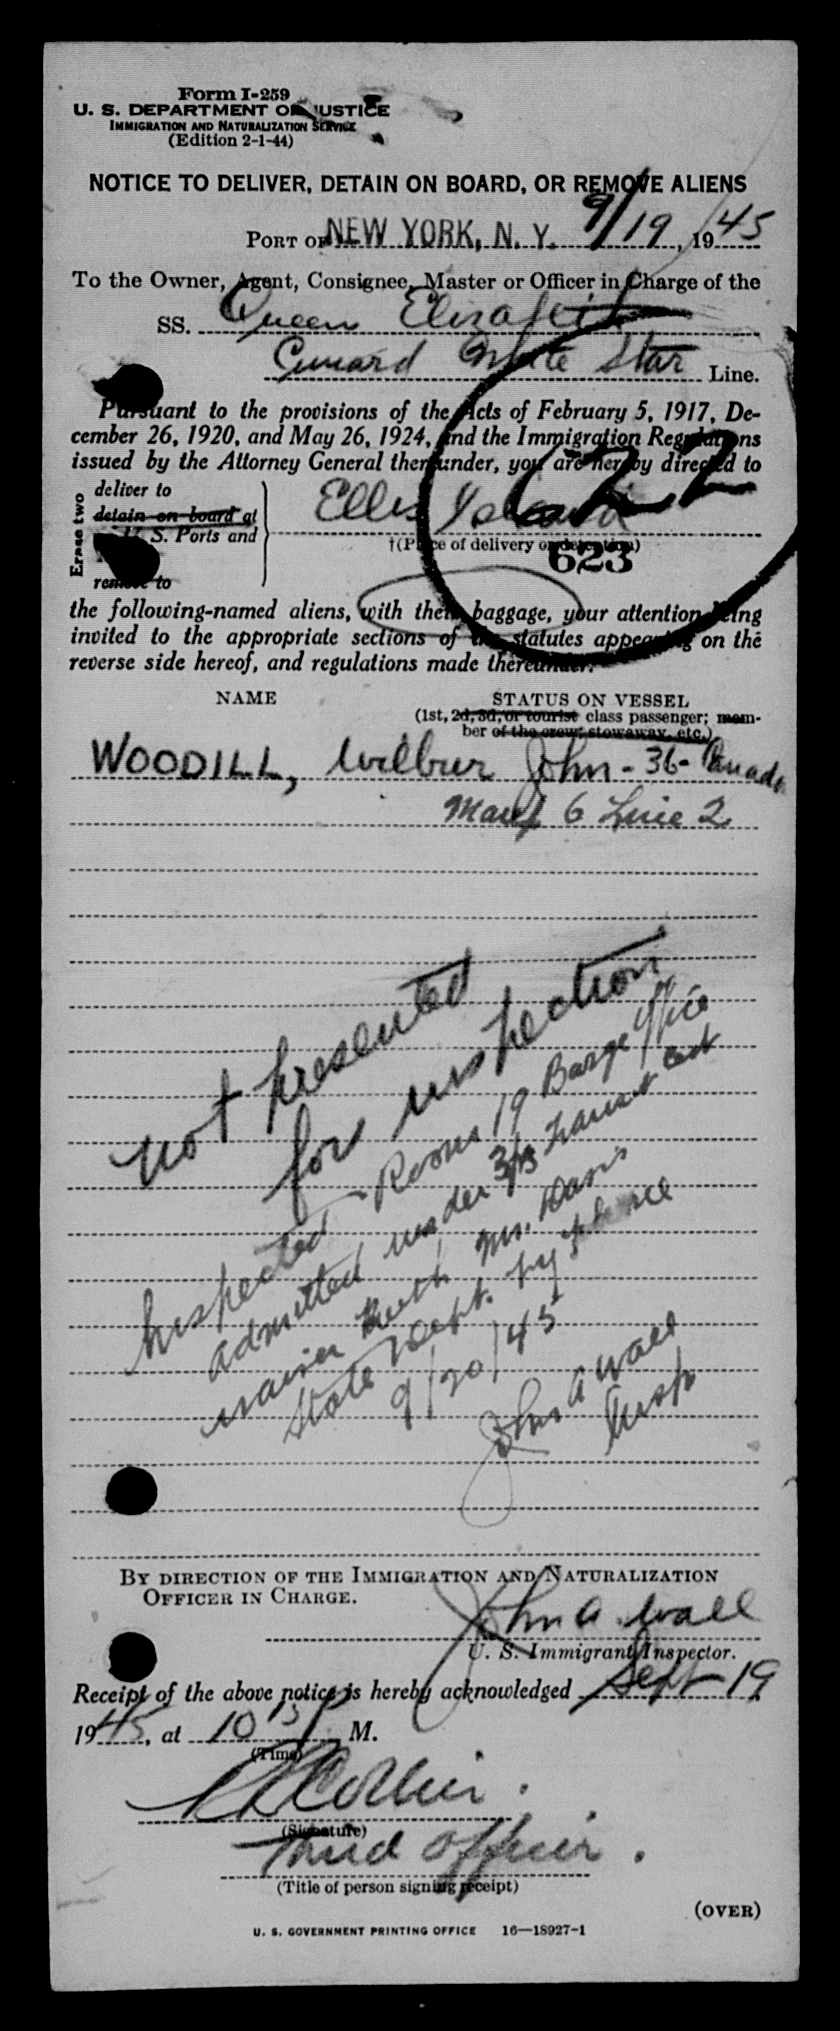 Form I-259
U. S. DEPARTMENT OF JUSTICE
IMMIGRATION AND NATURALIZATION SERVICE
(Edition 2-1-44)
NOTICE TO DELIVER, DETAIN ON BOARD, OR REMOVE ALIENS
PORT OF NEW YORK, N. Y. 9/19, 1945
To the Owner, Agent, Consignee, Master or Officer in Charge of the
SS. Queen Elizabeth
Cunard White Star Line.
Pursuant to the provisions of the Acts of February 5, 1917, De-
cember 26, 1920, and May 26, 1924, and the Immigration Regulations
issued by the Attorney General thereunder, you are hereby directed to
22
Erase two
deliver to
detain on board at
U. S. Ports and
remove to
Ellis Island
†(Place of delivery or detention)
623
the following-named aliens, with their baggage, your attention being
invited to the appropriate sections of the statutes appearing on the
reverse side hereof, and regulations made thereunder.
NAME STATUS ON VESSEL
(1st, 2d, 3d, or tourist class passenger; mem-
ber of the crew, stowaway, etc.)
WOODILL, Wilbur John - 36 - Canada
Manf 6 Line 2
not presented
for inspection
Inspected - Room 19 Barge Office
admitted under 3/13 transit
waiver Mr. Davis
State Dept. by phone
9/20/45
John A Wall
Insp
BY DIRECTION OF THE IMMIGRATION AND NATURALIZATION
OFFICER IN CHARGE.
John A. Wall
U. S. Immigrant Inspector.
Receipt of the above notice is hereby acknowledged Sept 19
1945, at 10 P. M.
(Time)
Collier.
(Signature)
Third Officer.
(Title of person signing receipt)
(OVER)
U. S. GOVERNMENT PRINTING OFFICE 16—18927-1